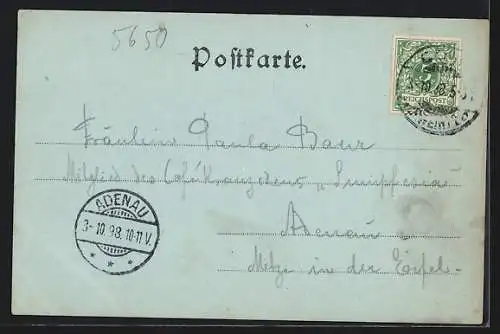 5650
Postkarte.
5
REICHSPOST
Fräulein Paula Baur
Mitglied des Cafékränzchens „
Adenau
in der Eifel.
ADENAU
3-10.98.10-11V.
* * *